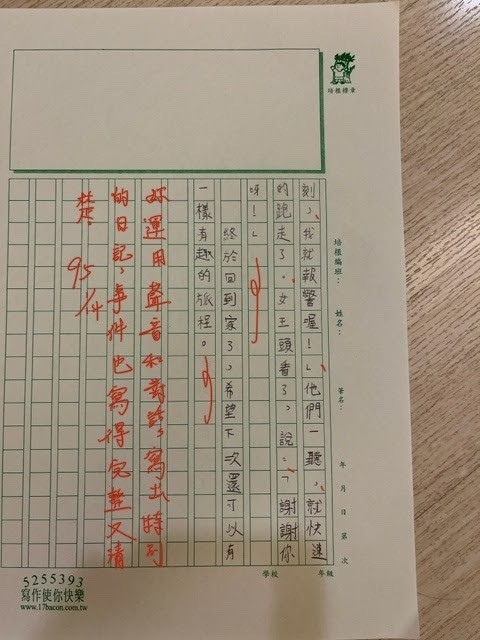 培根標章
培根編班：
姓名：
筆名：
年 月 日 第 次
學校
年級
刻，我就報警喔！」他們一聽，就快速
的跑走了。女王頭看了，說：「謝謝你
呀！」
終於回到家了，希望下次還可以有
一樣有趣的旅程。
好運用聲音和對話，寫出特別
的日記，事件也寫得完整又精
95
/14
5255393
寫作使你快樂
www.17bacon.com.tw